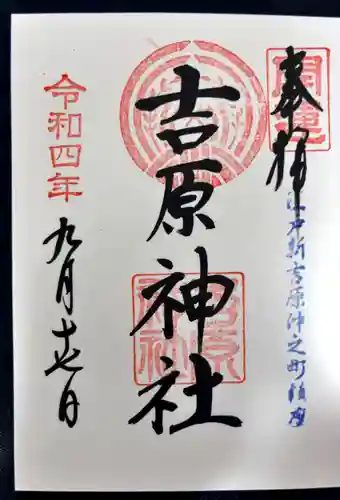 開運
奉拝
江戸新吉原仲之町鎮座
吉原神社
吉原
神社
令和四年
九月十七日